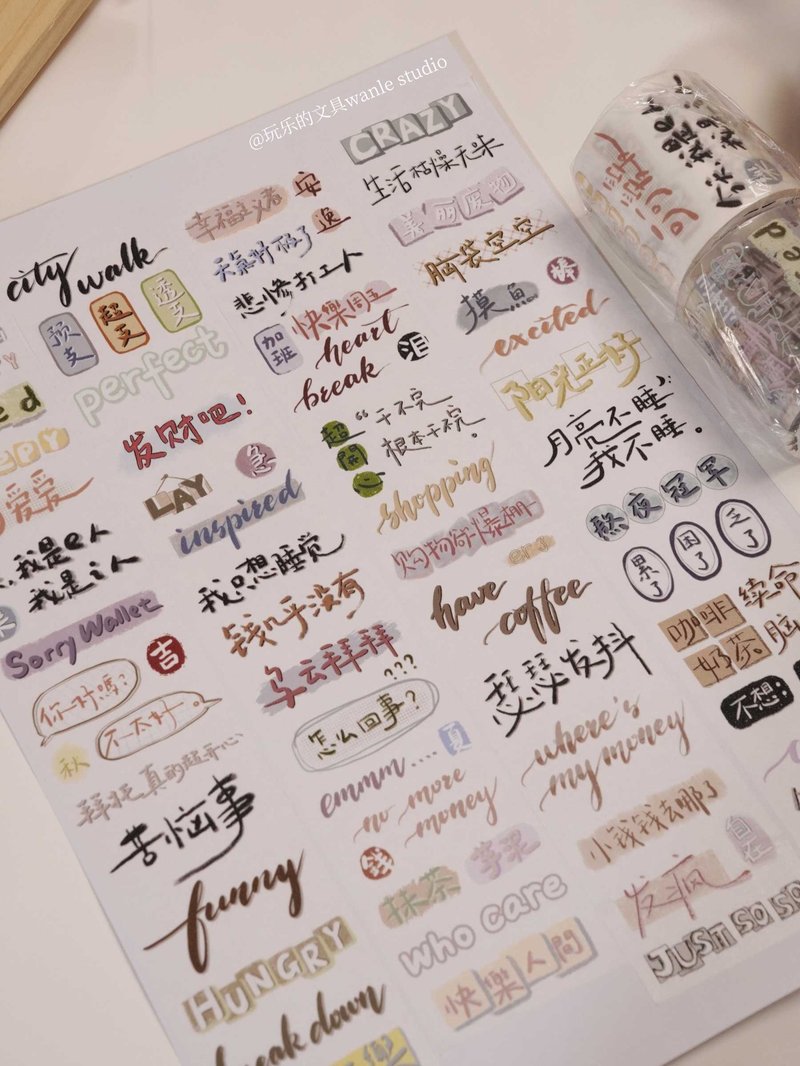 @玩乐的文具wanle studio
CRAZY
生活枯燥无味
美丽废物
脑袋空空
棒
摸鱼
excited
阳光正好
月亮不睡
我不睡。
熬夜冠军
累了
困了
乏了
咖啡
续命
奶茶
脑
不想
幸福主义者
安
逸
天菜好极了
悲惨打工人
快樂周五
加班
heart
break
泪
超
開
心
“干不完
根本干不完。
shopping
购物欲爆棚
have
coffee
瑟瑟发抖
where's
my money
小钱钱去哪了
自在
发疯
JUST SO SO
city walk
预支
超支
透支
perfect
发财吧！
急
PLAY
inspired
我只想睡觉
钱几乎没有
乌云拜拜
???
怎么回事?
夏
emmm....
no more
money
钱
抹茶
芋泥
who care
快樂人間
爱爱
我是e人
我是i人
Sorry Wallet
吉
你好嗎?
不太好。
秋
拜托,真的超开心
苦恼事
funny
HUNGRY
break down